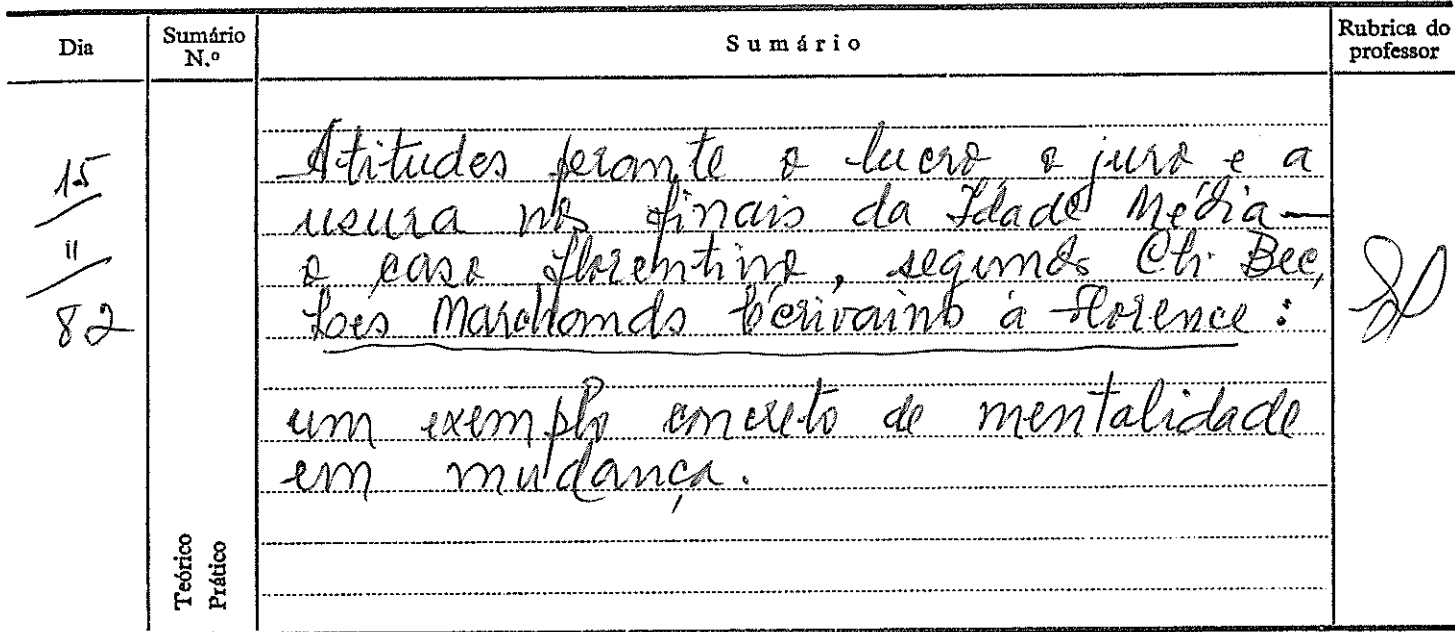 Dia
Sumário
N.º
Sumário
Rubrica do
professor
15
11
82
Atitudes perante o lucro o juro e a
usura nos finais da Idade Média —
o caso florentino, segundo Ch. Bec,
Les Marchands écrivains à Florence :
um exemplo concreto de mentalidade
em mudança.
Teórico
Prático